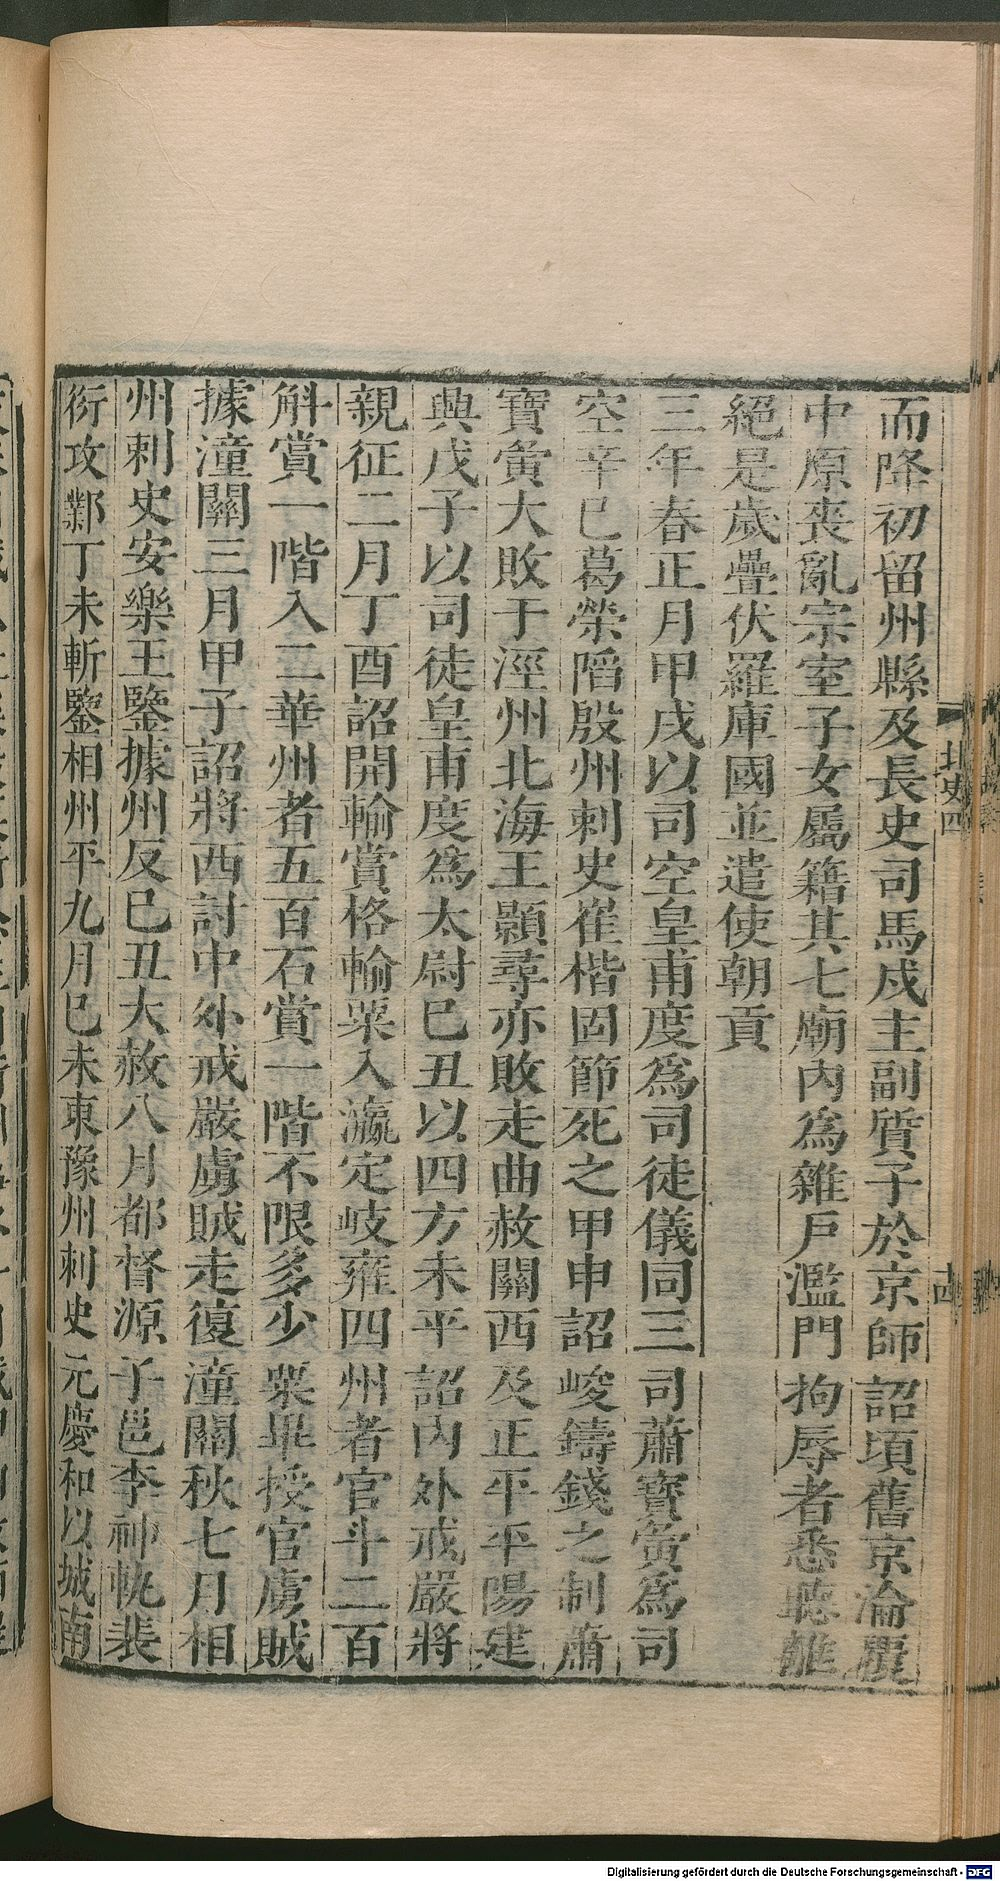 而降初留州縣及長史司馬戍主副質子於京師詔頃舊京淪覆
中原喪亂宗室子女屬籍其七廟內爲雜戶濫門拘辱者悉聽離
絕是歲疊伏羅庫國並遣使朝貢
三年春正月甲戌以司空皇甫度爲司徒儀同三司蕭寶夤爲司
空辛巳葛榮陷殷州刺史崔楷固節死之甲申詔峻鑄錢之制蕭
寶夤大敗于涇州北海王顥尋亦敗走曲赦關西及正平平陽建
興戊子以司徒皇甫度爲太尉巳丑以四方未平詔內外戒嚴將
親征二月丁酉詔開輸賞格輸粟入瀛定岐雍四州者官斗二百
斛賞一階入二華州者五百石賞一階不限多少粟畢授官虜賊
據潼關三月甲子詔將西討中外戒嚴虜賊走復潼關秋七月相
州刺史安樂王鑒據州反巳丑大赦八月都督源子邕李神軌裴
衍攻鄴丁未斬鑒相州平九月巳未東豫州刺史元慶和以城南
北史四
十四
Digitalisierung gefördert durch die Deutsche Forschungsgemeinschaft - DFG